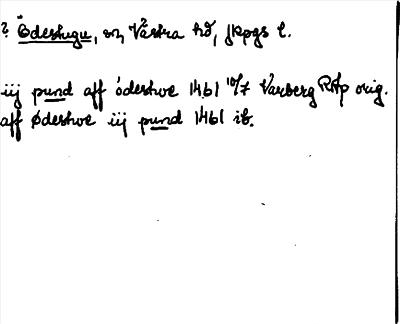 ? Ödeshugu, sn, Västra hd, Jkpgs l.
iij pund aff ódeshoe 1461 10/7 Varberg RAp orig.
aff ødeshoe iij pund 1461 ib.